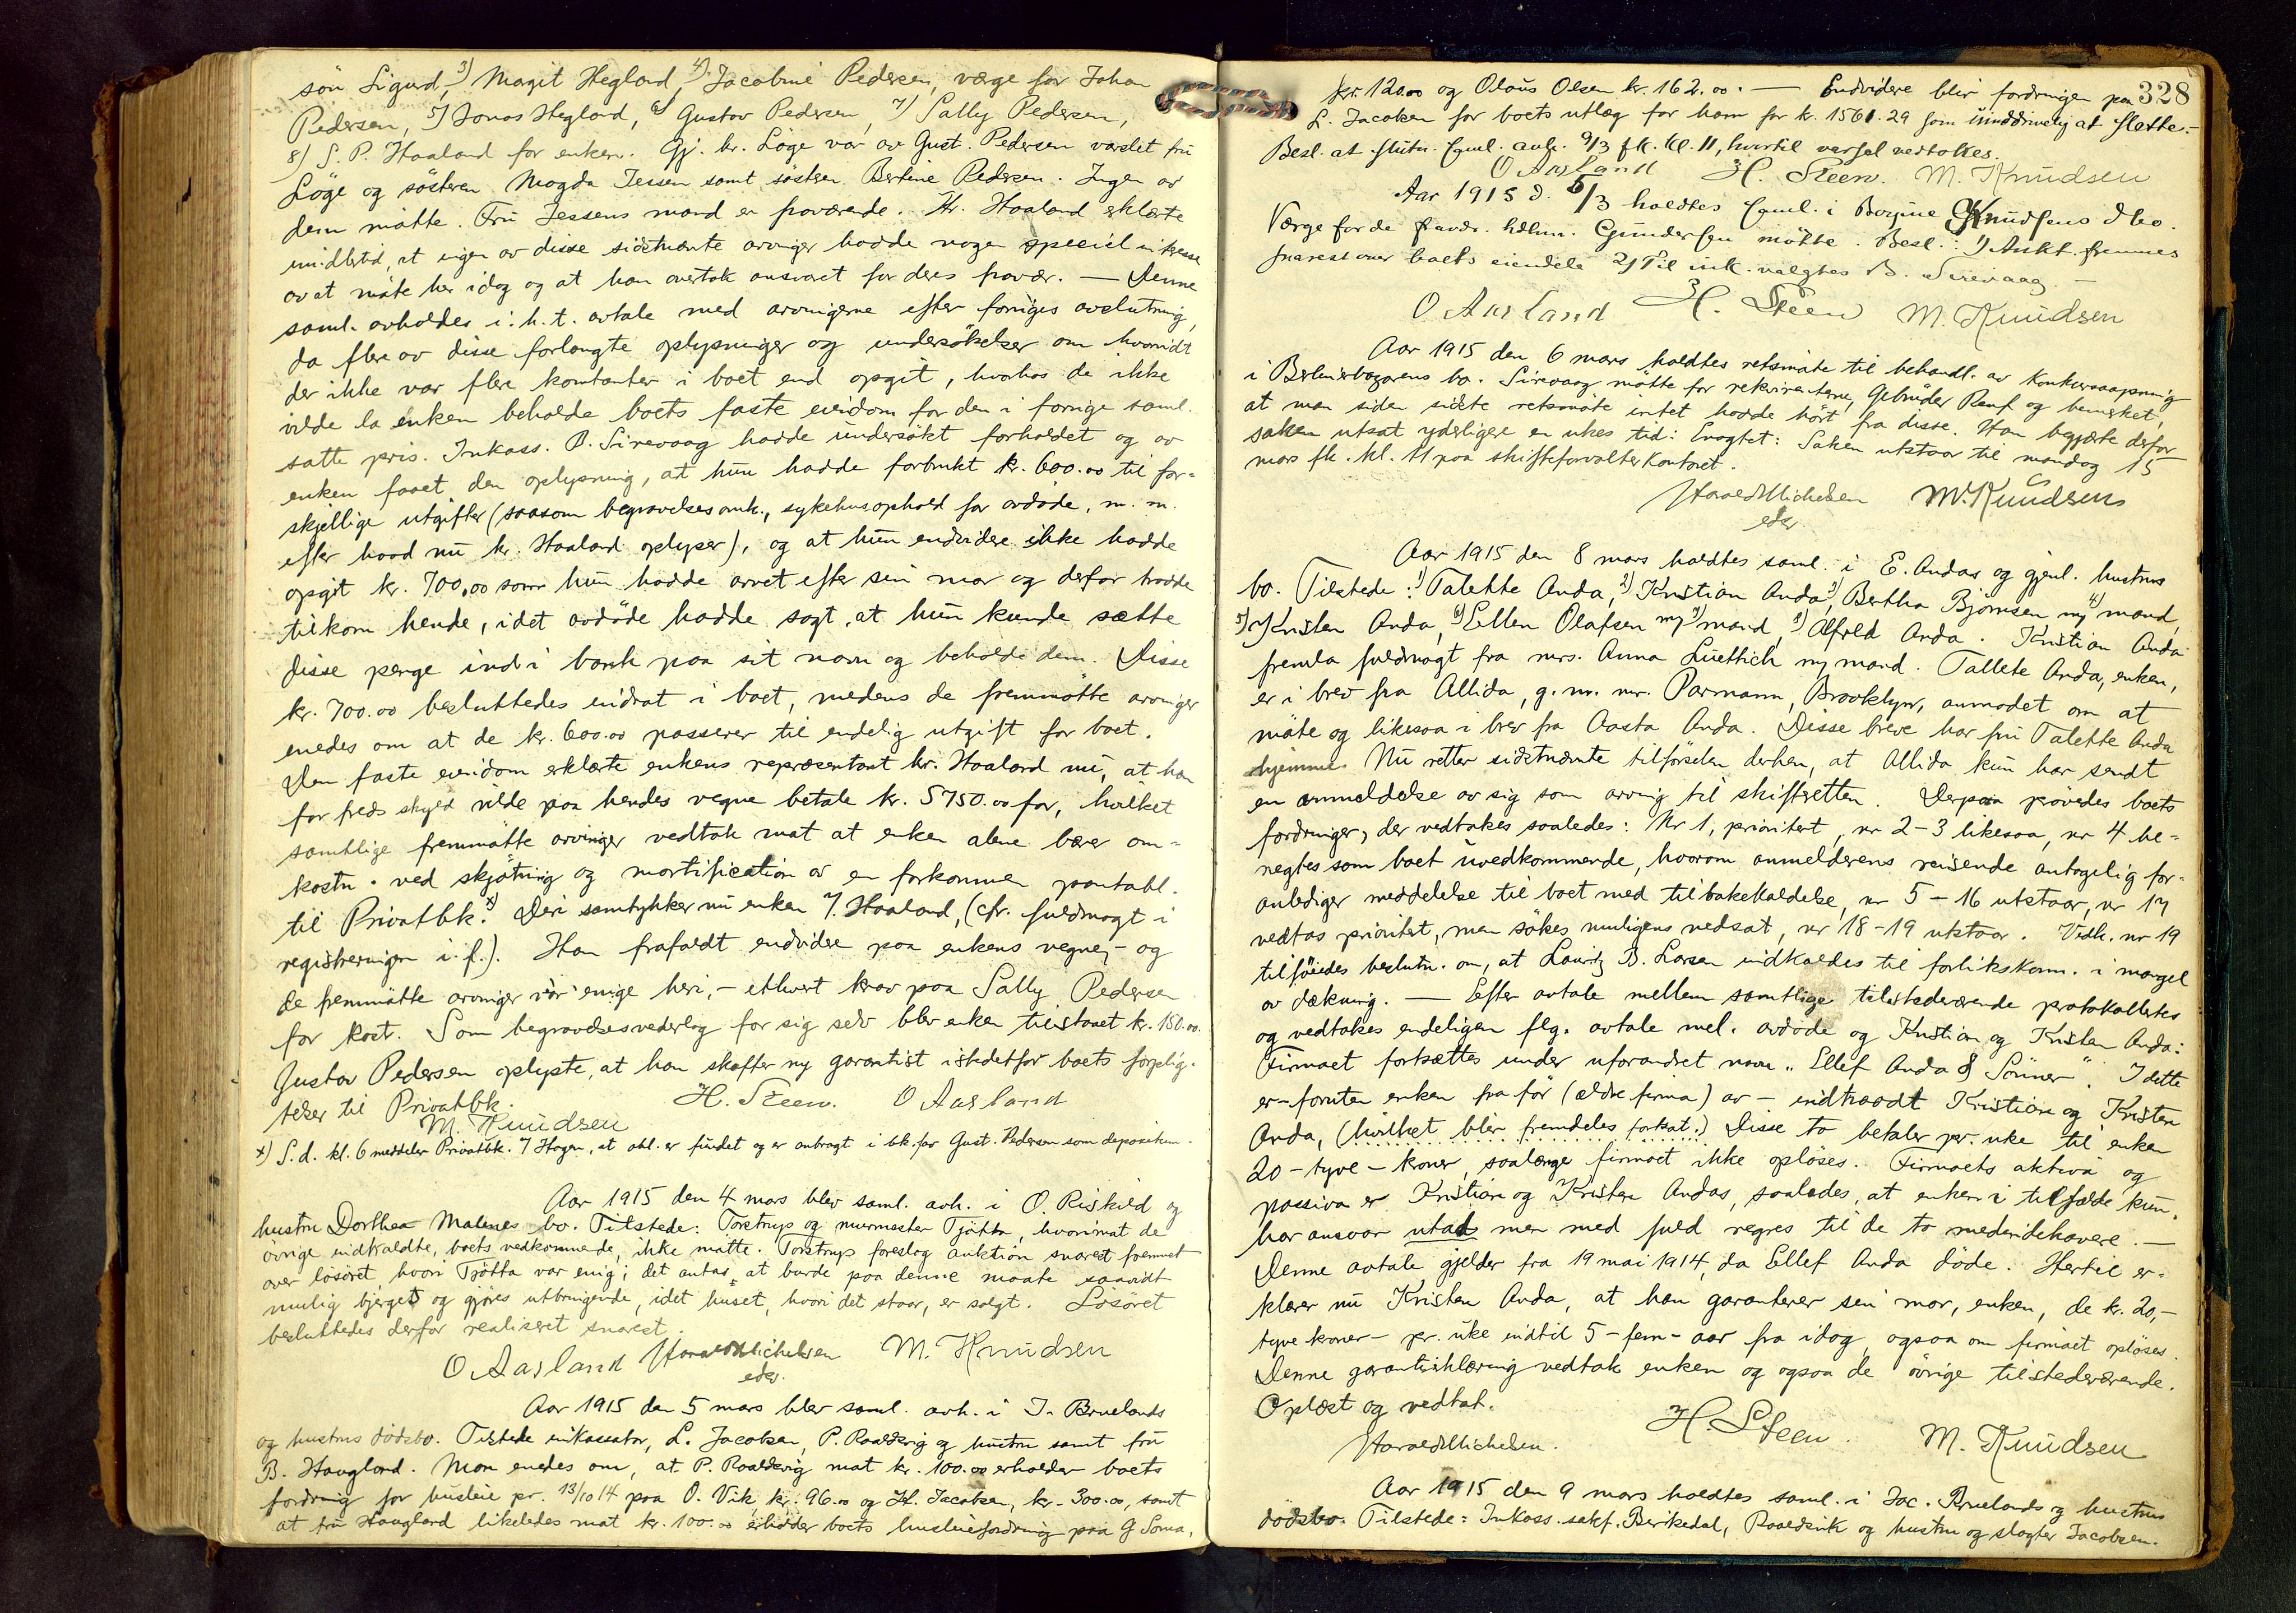 søn Sigurd, 3) Magit Hegland, 4) Jacobine Pedersen, verge for Johan
Pedersen, 5) Jonas Hegland, 6) Gustav Pedersen, 7) Sally Pedersen,
8) S. P. Haaland for enken. Gj. hr. Løge var av Gust. Pedersen varslet fru
Løge og søsteren Magda Jessen samt søsteren Bertine Pedersen. Ingen av
dem møtte. Fru Jessens mand er fraværende. Hr. Haaland erklærte
imidlertid, at ingen av disse sidstnævnte arvinger hadde nogen speciel interesse
av at møte her idag og at han overtok ansvaret for deres fravær. — Denne
saml. avholdes i. h. t. avtale med arvingerne efter forriges avslutning,
da flere av disse forlangte oplysninger og undersøkelser om hvorvidt
der ikke var flere kontanter i boet end opgit, hvorhos de ikke
vilde la enken beholde boets faste eiendom for den i forrige saml.
satte pris. Inkass. B. Sirevaag hadde undersøkt forholdet og av
enken faaet den oplysning, at hun hadde forbrukt kr. 600.00 til for-
skjellige utgifter (saasom begravelsesomk., sykehusophold for avdøde, m. m.
efter hvad nu hr. Haaland oplyser), og at hun endvidere ikke hadde
opgit kr. 700,00 som hun hadde arvet efter sin mor og derfor trodde
tilkom hende, idet avdøde hadde sagt, at hun kunde sætte
disse penge ind i bank paa sit navn og beholde dem. Disse
kr. 700.00 besluttedes inddrat i boet, medens de fremmøtte arvinger
enedes om at de kr. 600.00 passerer til endelig utgift for boet.
Den faste eiendom erklærte enkens repræsentant hr. Haaland nu, at han
for freds skyld vilde paa hendes vegne betale kr. 5750.00 for, hvilket
samtlige fremmøtte arvinger vedtok mot at enken alene bærer om-
kostn. ved skjøtning og mortification av en forkommen pantobl.
til Privatbk. x) Deri samtykker nu enken v/ Haaland, (cfr. fuldmagt i
registreringen i. f.). Han frafaldt endvidere paa enkens vegne, - og
de fremmøtte arvinger var enige heri, - ethvert krav paa Sally Pedersen
for kost. Som begravelsesvederlag for sig selv blev enken tilstaaet kr. 150.00.
Gustav Pedersen oplyste, at han skaffer ny garantist istedetfor boets forplig-
telser til Privatbk.
H. Steen. O Aasland
M. Knudsen
x) S. d. kl. 6 meddeler Privatbk. v/ Hagen, at obl. er fundet og er anbragt i bk. for Gust. Pedersen som depositum.
Aar 1915 den 4 mars blev saml. avh. i O. Riskild og
hustru Dorthea Malenes bo. Tilstede: Torstrup og murmester Tjøtta, hvorimot de
øvrige indkaldte, boets vedkommende, ikke møtte. Torstrup foreslog auktion snarest fremmet
over løsøret, hvori Tjøtta var enig; det antas, at burde paa denne maate saavidt
mulig bjerget og gjøres utbringende, idet huset, hvori det staar, er solgt. Løsøret
besluttedes derfor realiseret snarest.
O Aasland Harald Michelsen M. Knudsen
edsv.
Aar 1915 den 5 mars blev saml. avh. i J. Bruelands
og hustrus dødsbo. Tilstede inkassator, L. Jacobsen, P. Roaldkvig og hustru samt fru
B. Haugland. Man enedes om, at P. Roaldkvig mot kr. 100.00 erholder boets
fordring for husleie pr. 13/10 14 paa O. Vik, kr. 96.00 og H. Jacobsen, kr. 300.00, samt
at fru Haugland likeledes mot kr. 100.00 erholder boets husleiefordring paa G Soma,
328
kr. 120.00 og Olaus Olsen kr. 162.00. — Endvidere blir fordringen paa
L. Jacobsen for boets utlæg for ham for kr. 1561.29 som uinddrivelig at slette.
Besl. at slutn. saml. avh. 9/3 fk. kl. 11, hvortil varsel vedtokes.
O Aasland H. Steen. M. Knudsen
Aar 1915 d. 5/3 holdtes saml. i Borgine Knudsens dbo.
Værge for de fravær. Gundersen møtte. Besl.: 1) Aukt. fremmes
snarest over boets eiendele 2) Til ink. valgtes B. Sirevaag. —
O Aasland H. Steen M. Knudsen
Aar 1915 den 6 mars holdtes retsmøte til behandl. av konkursaapning
i Berlinerbazarens bo. Sirevaag møtte for rekvirenterne, Gebrüder Rauf og bemerket,
at man siden sidste retsmøte intet hadde hørt fra disse. Han begjærte derfor
saken utsat yderligere en ukes tid: Eragtet: Saken utstaar til mandag 15
mars fk. kl. 11 paa skifteforvalterkontoret.
Harald Michelsen M. Knudsen
edsv.
Aar 1915 den 8 mars holdtes saml. i E. Andas og gjenl. hustrus
bo. Tilstede: 1) Talette Anda, 2) Kristian Anda, 3) Bertha Bjørnsen m/ 4) mand,
5) Kristen Anda, 6) Ellen Olafsen m/ 7) mand, 8) Alfred Anda. Kristian Anda
fremla fuldmagt fra mrs. Anna Luettich m/ mand. Tallete Anda, enken,
er i brev fra Allida, g. m. mr. Parmann, Brooklyn, anmodet om at
møte og likesaa i brev fra Aasta Anda. Disse breve har fru Talette Anda
hjemme. Nu retter sidstnævnte tilførselen derhen, at Allida kun har sendt
en anmeldelse av sig som arving til skifteretten. Derpaa prøvedes boets
fordringer, der vedtokes saaledes: Nr 1, prioritert, nr 2-3 likesaa, nr 4 be-
negtes som boet uvedkommende, hvorom anmelderens reisende antagelig for-
anlediger meddelelse til boet med tilbakekaldelse, nr 5-16 utstaar, nr 17
vedtas prioritert, men søkes muligens nedsat, nr 18-19 utstaar. Vedk. nr 19
tilføiedes beslutn. om, at Lauritz B. Larsen indkaldes til forlikskom. i mangel
av dækning. — Efter avtale mellem samtlige tilstedeværende protokolleres
og vedtokes endeligen flg. avtale mel. avdøde og Kristian og Kristen Anda:
Firmaet fortsættes under uforandret navn „Ellef Anda & Sønner". I dette
er - foruten enken fra før (ældre firma) av - indtraadt Kristian og Kristen
Anda, (hvilket blir fremdeles fortsat.) Disse to betaler pr. uke til enken
20 - tyve - kroner, saalænge firmaet ikke opløses. Firmaets aktiva og
passiva er Kristian og Kristen Andas, saaledes, at enken i tilfælde kun
har ansvar utad men med fuld regres til de to medindehavere. —
Denne avtale gjelder fra 19 mai 1914, da Ellef Anda døde. Hertil er-
klærer nu Kristen Anda, at han garanterer sin mor, enken, de kr. 20,-
tyve kroner - pr. uke indtil 5 - fem - aar fra idag, ogsaa om firmaet opløses.
Denne garantierklæring vedtok enken og ogsaa de øvrige tilstedeværende.
Oplæst og vedtat.
Harald Michelsen. H. Steen. M. Knudsen
Aar 1915 den 9 mars holdtes saml. i Jac. Bruelands og hustrus
dødsbo. Tilstede: Inkass. sakf. Berkedal, Roaldkvik og hustru og slagter Jacobsen.